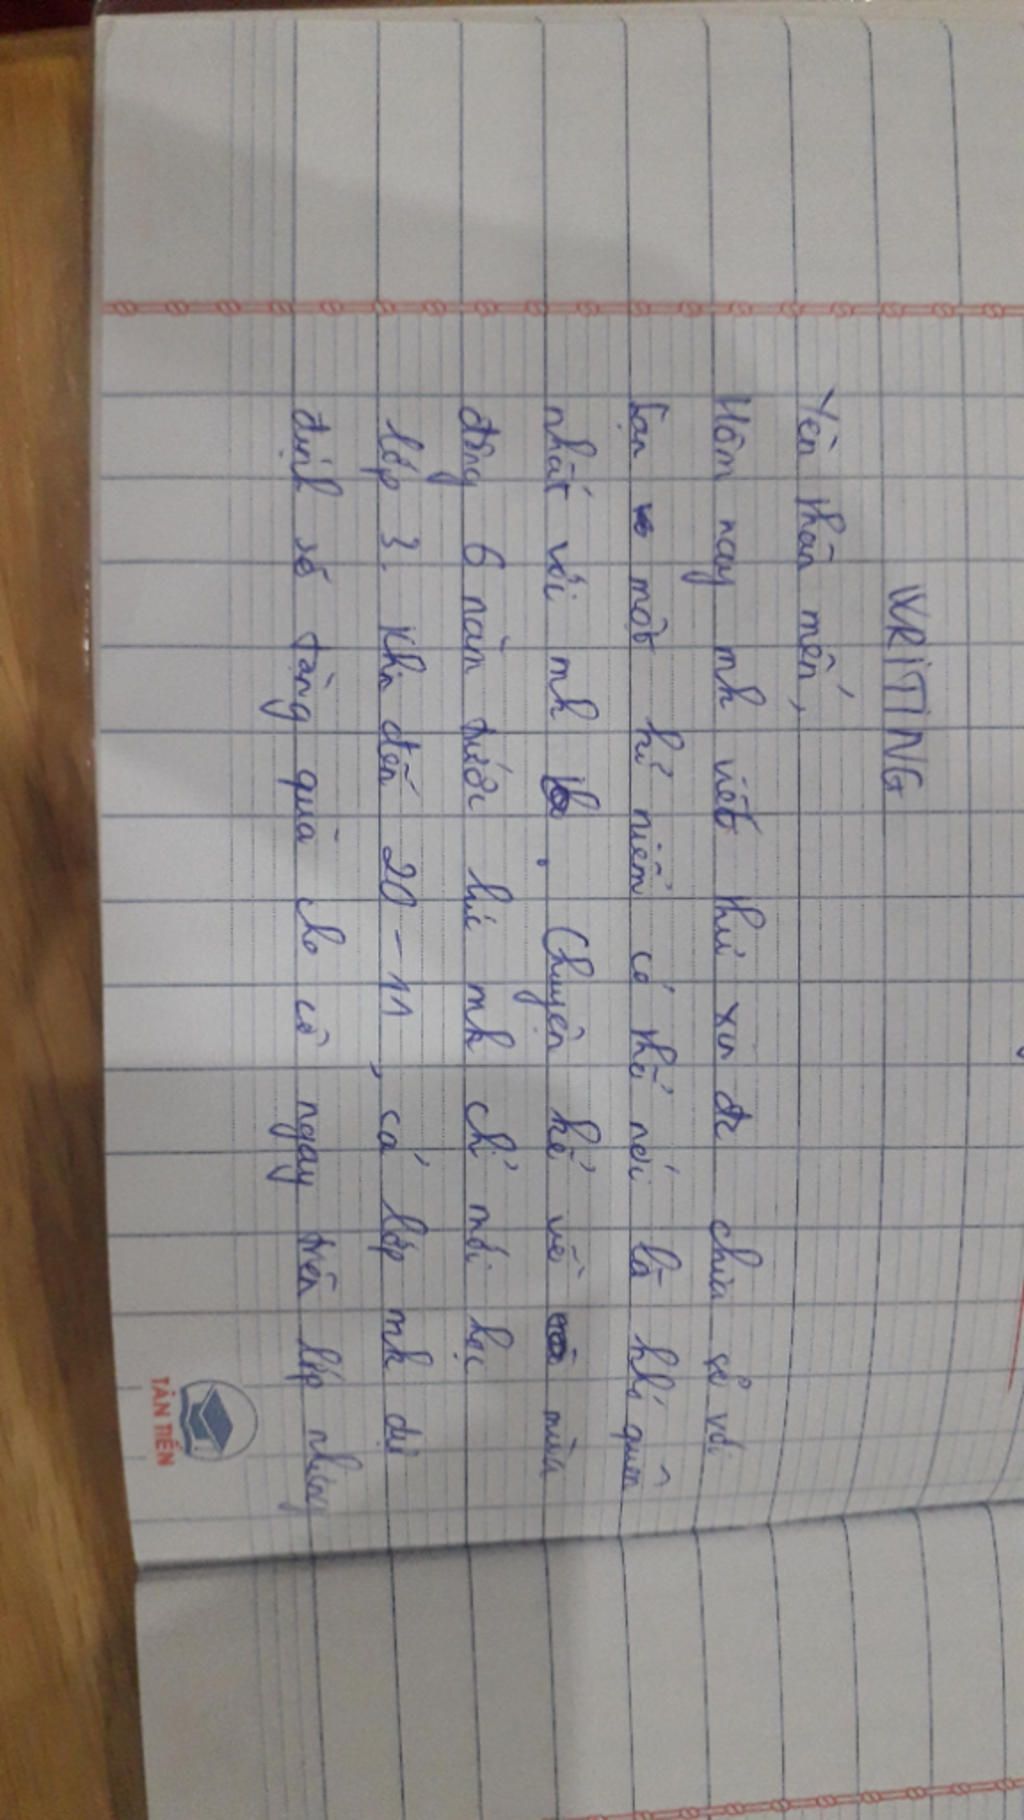 WRITING
Yến thân mến,
Hôm nay mh viết thư xin đc chia sẻ với
bạn một kỉ niệm có thể nói là khó quên
nhất với mh. Chuyện kể về mùa
đông 6 năm trước lúc mh chỉ mới học
lớp 3. Khi đến 20-11, cả lớp mh dự
định sẽ tặng quà cho cô ngay trên lớp nhưng
TÂN TIẾN